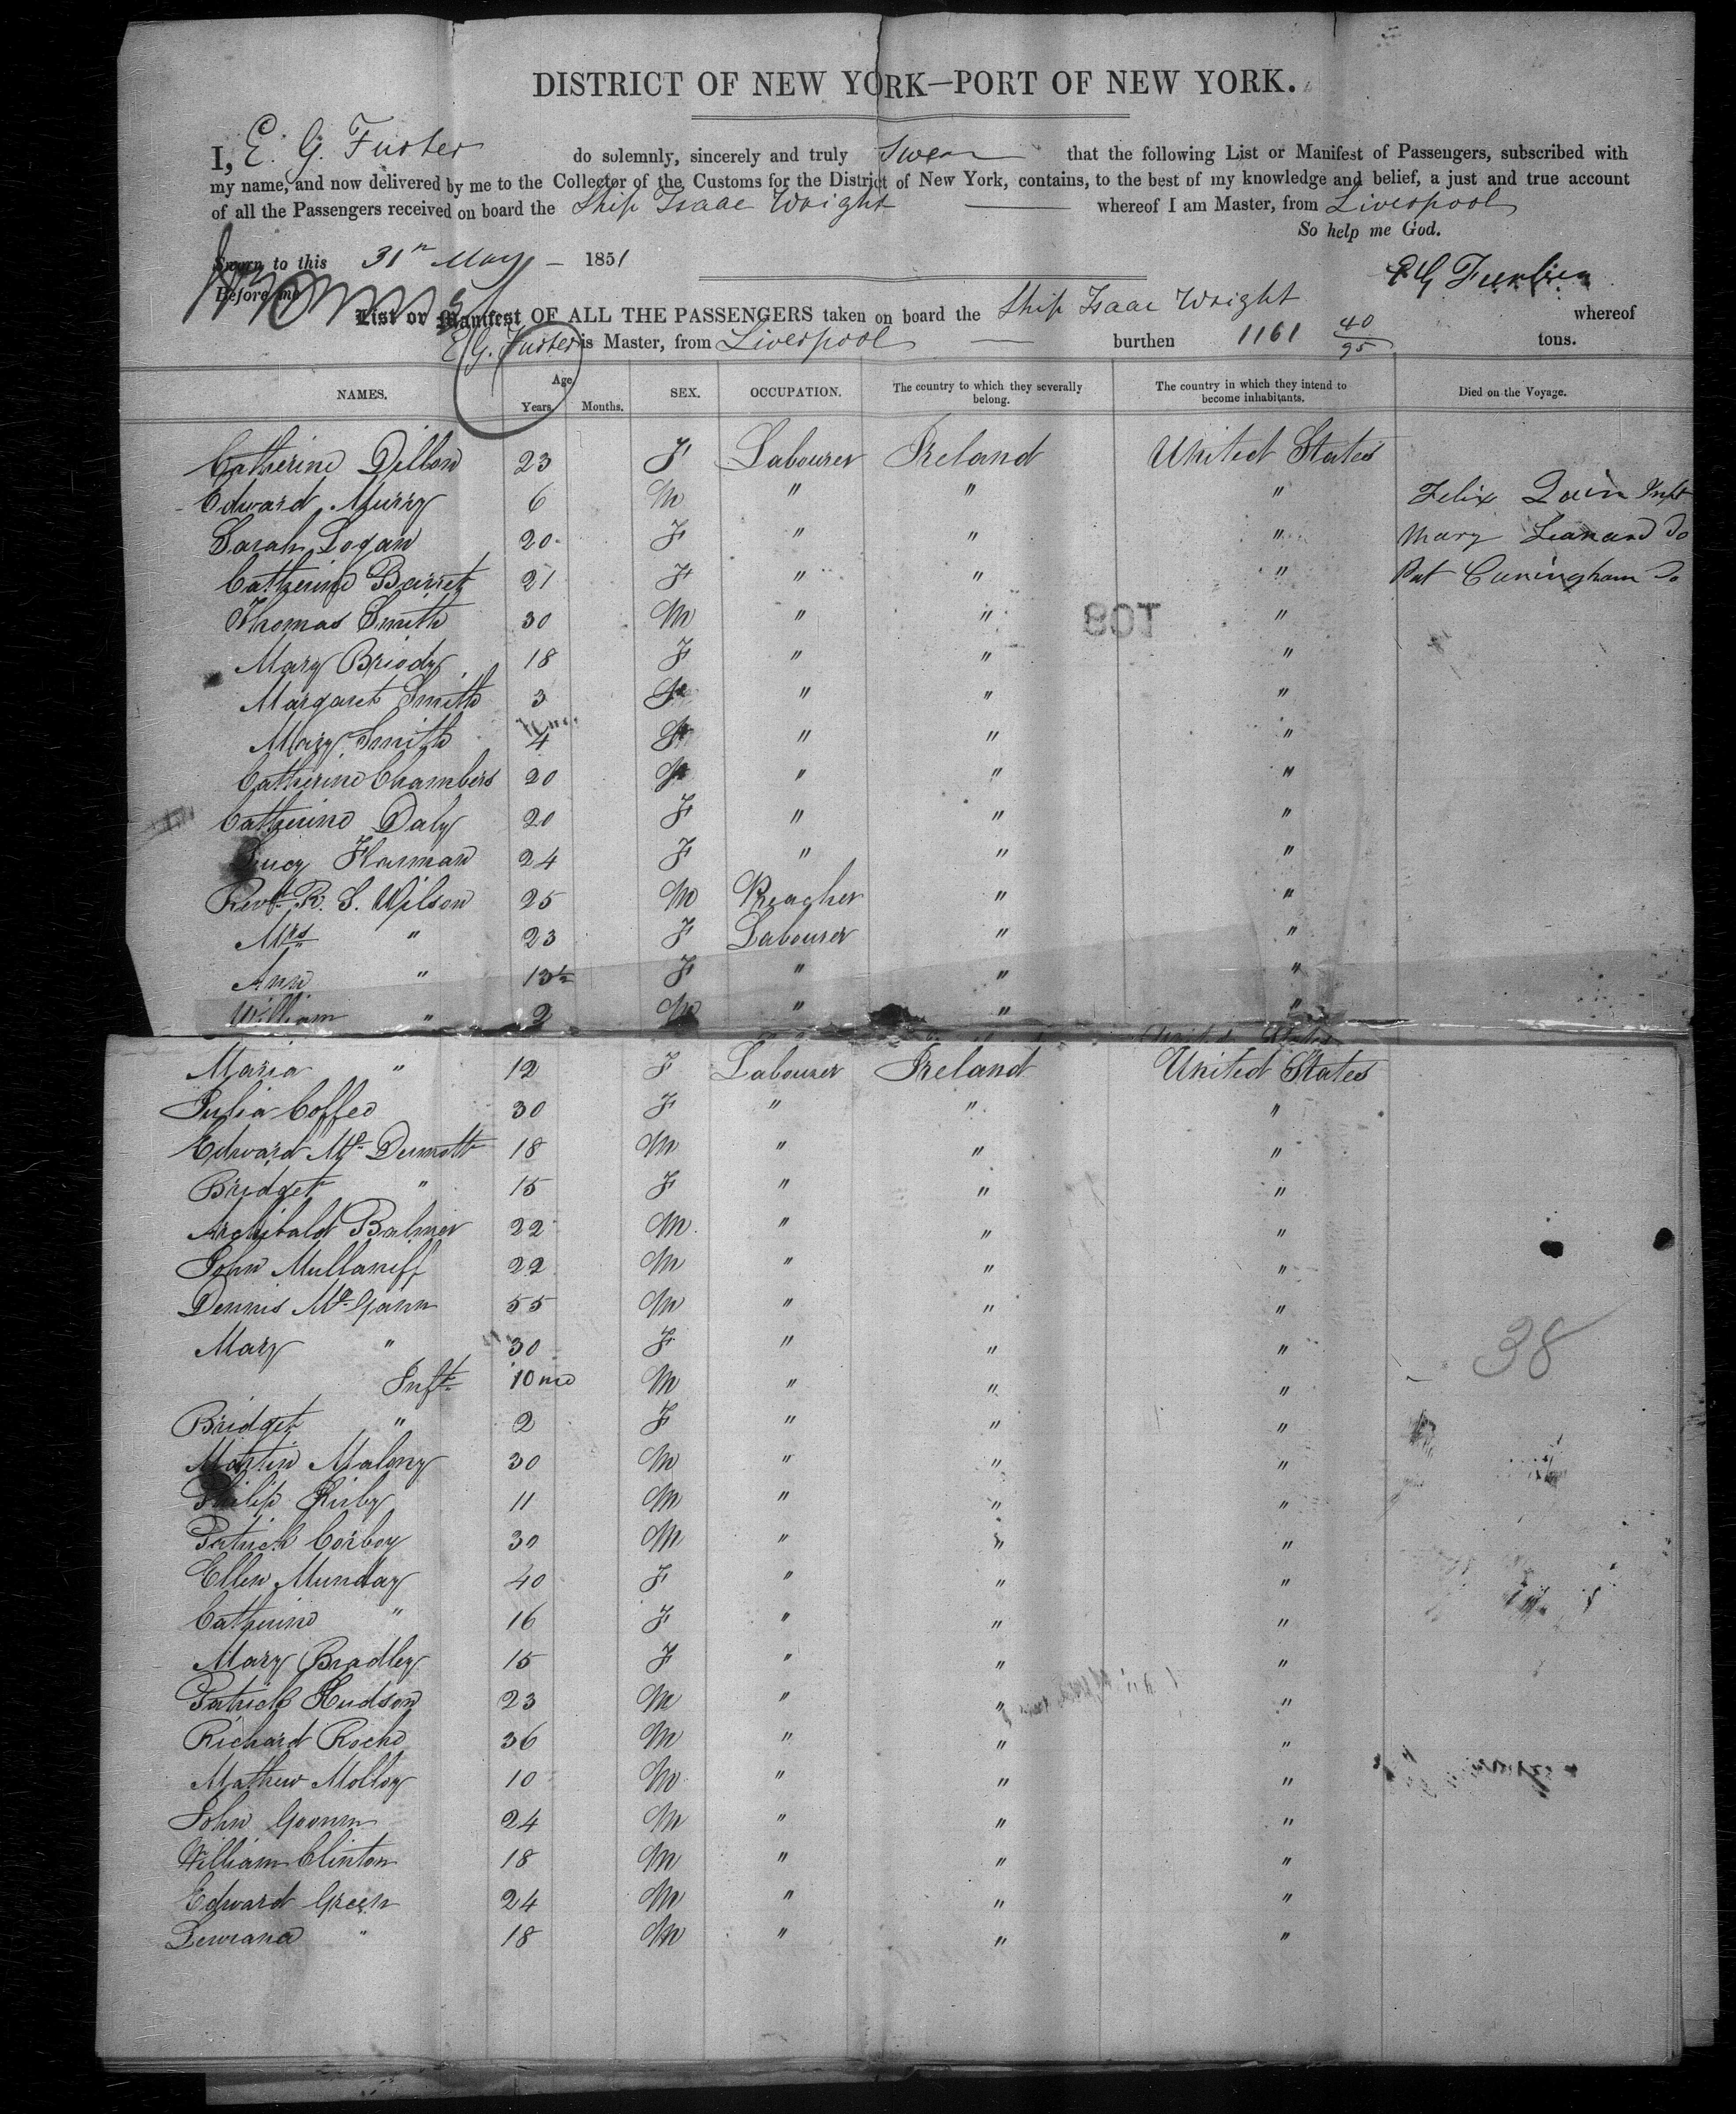 DISTRICT OF NEW YORK—PORT OF NEW YORK.
I, E. G. Furber do solemnly, sincerely and truly Swear that the following List or Manifest of Passengers, subscribed with
my name, and now delivered by me to the Collector of the Customs for the District of New York, contains, to the best of my knowledge and belief, a just and true account
of all the Passengers received on board the Ship Isaac Wright whereof I am Master, from Liverpool
So help me God.
Sworn to this 31st May 1851
Before me
E G Furber
List or Manifest OF ALL THE PASSENGERS taken on board the Ship Isaac Wright whereof
E G. Furber is Master, from Liverpool burthen 1161 40/95 tons.
NAMES. Age Years. Months. SEX. OCCUPATION. The country to which they severally belong. The country in which they intend to become inhabitants. Died on the Voyage.
Catherine Dillon 23 F Labourer Ireland United States
Edward Murry 6 M " " " Felix Quin Inft
Sarah Logan 20 F " " " Mary Leanard Do
Catherine Barret 21 F " " " Pat Cuningham Do
Thomas Smith 30 M " " "
108
Mary Briody 18 F " " "
Margaret Smith 3 F " " "
Mary Smith 4 F " " "
Catherine Chambers 20 F " " "
Catherine Daly 20 F " " "
Lucy Hanman 24 F " " "
Revd. R. S. Wilson 25 M Preacher " "
Mrs " 23 F Labourer " "
Ann " 13½ F " " "
William " 2 M " " "
Maria " 12 F Labourer Ireland United States
Julia Coffee 30 F " " "
Edward Mc Dermott 18 M " " "
Bridget " 15 F " " "
Archibald Balmer 22 M " " "
John Mullaniff 22 M " " "
Dennis Mc Gann 55 M " " "
Mary " 30 F " " "
38
Inft. 10 mo M " " "
Bridget " 2 F " " "
Martin Malony 30 M " " "
Philip Kirby 11 M " " "
Patrick Corboy 30 M " " "
Ellen Munday 40 F " " "
Catherine " 16 F " " "
Mary Bradley 15 F " " "
Patrick Hudson 23 M " " "
Richard Roche 36 M " " "
Mathew Molloy 10 M " " "
John 24 M " " "
William Clinton 18 M " " "
Edward Green 24 M " " "
" 18 M " " "